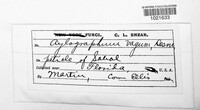 1021633
FUNGI. C. L. SHEAR.
No. Aylographum vagum, Desm
On petiole of Sabal
Florida U. S. A.
Martin, Com Ellis